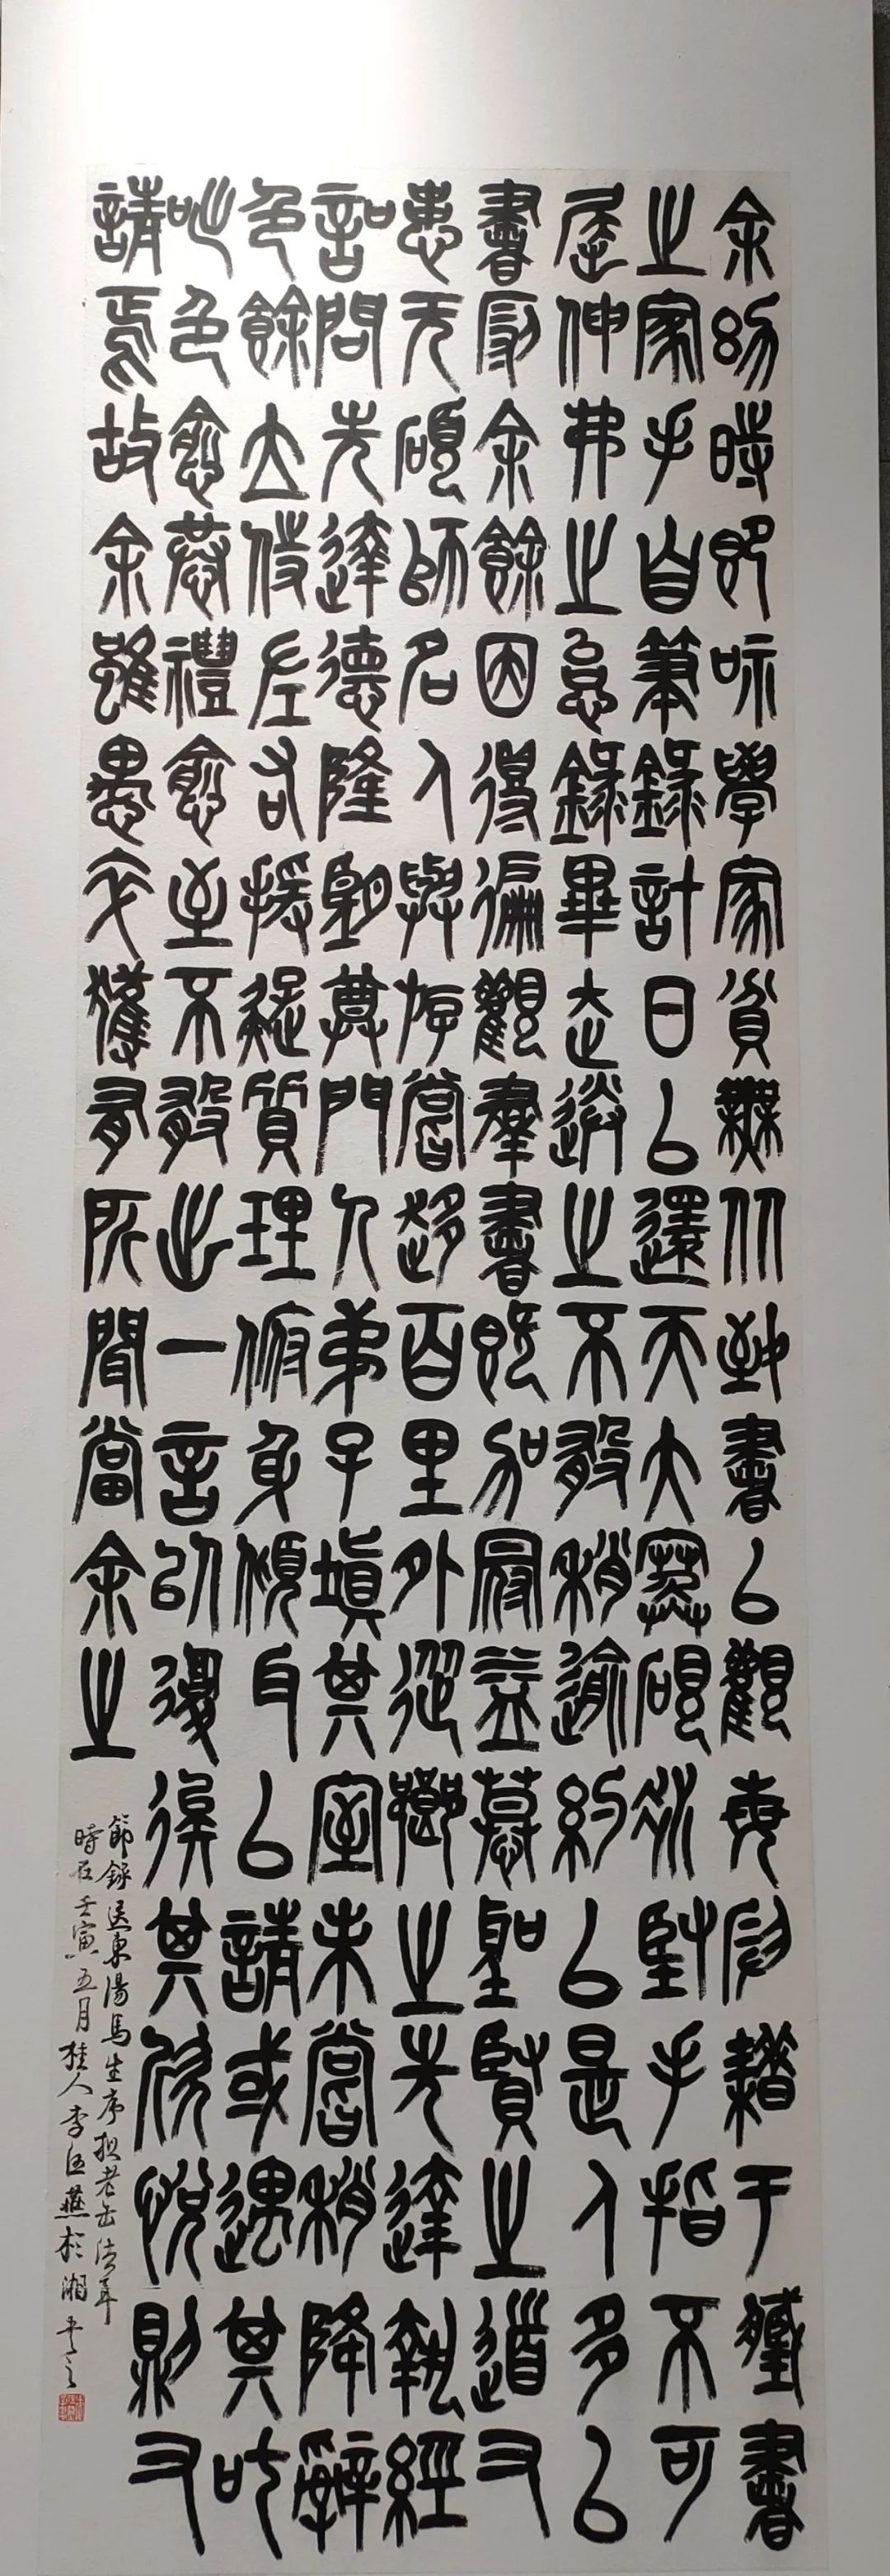 余幼時即嗜學家貧無从致書以觀每假藉于藏書
之家手自筆錄計日以還天大寒硯冰堅手指不可
屈伸弗之怠錄畢走送之不敢稍逾約以是人多以
書假余餘因得徧觀羣書既加冠益慕聖賢之道又
患无碩師名人與游嘗趨百里外從鄉之先達執經
叩問先達德隆望尊門人弟子填其室未嘗稍降辭
色餘立侍左右援疑質理俯身傾耳以請或遇其叱
咄色愈恭禮愈至不敢出一言以復俟其欣悅則又
請焉故余雖愚卒獲有所聞當余之
節錄送東陽馬生序擬老缶法
時在壬寅五月桂人李伍燕於湘